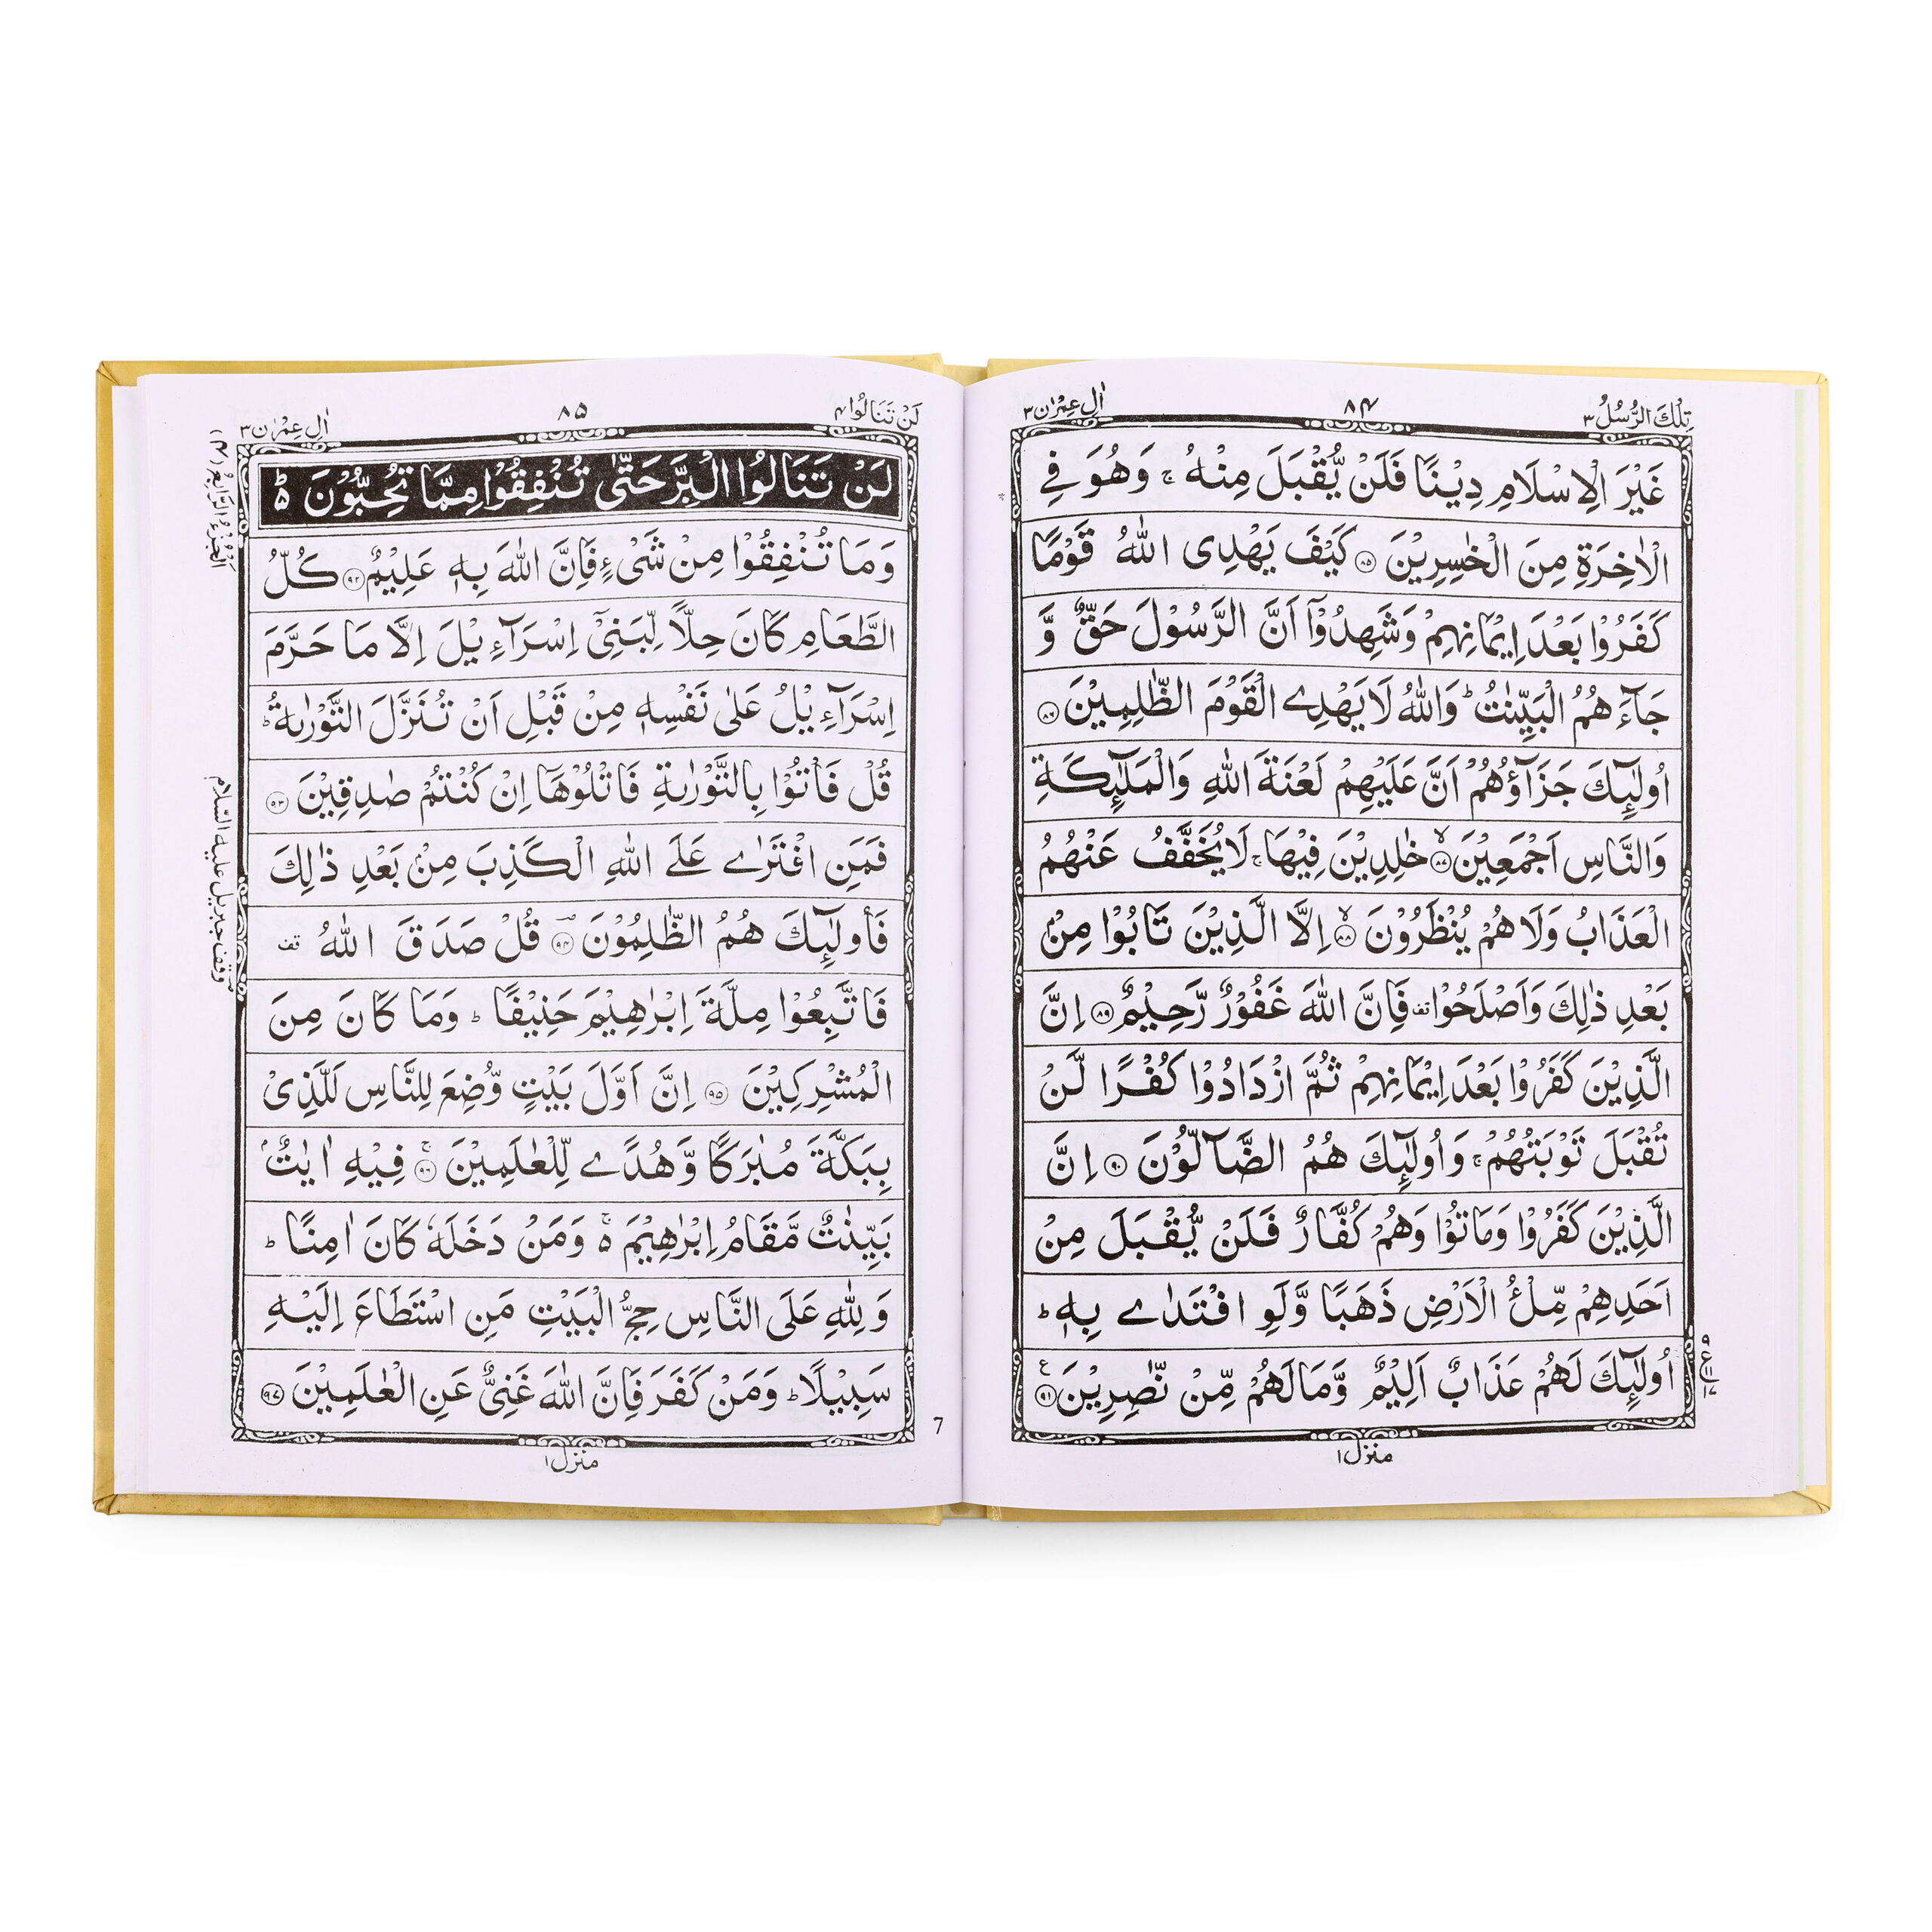 تِلْكَ الرُّسُلُ ٣
٨٤
اٰلِ عِمْرٰن ٣
غَيْرَ الْاِسْلَامِ دِيْنًا فَلَنْ يُّقْبَلَ مِنْهُ ۚ وَهُوَ فِي
الْاٰخِرَةِ مِنَ الْخٰسِرِيْنَ ۝٨٥ كَيْفَ يَهْدِى اللّٰهُ قَوْمًا
كَفَرُوْا بَعْدَ اِيْمَانِهِمْ وَشَهِدُوْٓا اَنَّ الرَّسُوْلَ حَقٌّ وَّ
جَآءَهُمُ الْبَيِّنٰتُ ؕ وَاللّٰهُ لَا يَهْدِے الْقَوْمَ الظّٰلِمِيْنَ ۝٨٦
اُولٰٓئِكَ جَزَآؤُهُمْ اَنَّ عَلَيْهِمْ لَعْنَةَ اللّٰهِ وَالْمَلٰٓئِكَةِ
وَالنَّاسِ اَجْمَعِيْنَ ۝٨٧ۙ خٰلِدِيْنَ فِيْهَا ۚ لَا يُخَفَّفُ عَنْهُمُ
الْعَذَابُ وَلَا هُمْ يُنْظَرُوْنَ ۝٨٨ۙ اِلَّا الَّذِيْنَ تَابُوْا مِنْۢ
بَعْدِ ذٰلِكَ وَاَصْلَحُوْا قف فَاِنَّ اللّٰهَ غَفُوْرٌ رَّحِيْمٌ ۝٨٩ اِنَّ
الَّذِيْنَ كَفَرُوْا بَعْدَ اِيْمَانِهِمْ ثُمَّ ازْدَادُوْا كُفْرًا لَّنْ
تُقْبَلَ تَوْبَتُهُمْ ۚ وَاُولٰٓئِكَ هُمُ الضَّآلُّوْنَ ۝٩٠ اِنَّ
الَّذِيْنَ كَفَرُوْا وَمَاتُوْا وَهُمْ كُفَّارٌ فَلَنْ يُّقْبَلَ مِنْ
اَحَدِهِمْ مِّلْءُ الْاَرْضِ ذَهَبًا وَّلَوِ افْتَدٰے بِهٖ ؕ
اُولٰٓئِكَ لَهُمْ عَذَابٌ اَلِيْمٌ وَّمَا لَهُمْ مِّنْ نّٰصِرِيْنَ ۝٩١ۧ
منزل ١
لَنْ تَنَالُوا ٤
٨٥
اٰلِ عِمْرٰن ٣
اَلْجُزْءُ الرَّابِعُ (٤)
لَنْ تَنَالُوا الْبِرَّ حَتّٰى تُنْفِقُوْا مِمَّا تُحِبُّوْنَ ؕ
وَمَا تُنْفِقُوْا مِنْ شَىْءٍ فَاِنَّ اللّٰهَ بِهٖ عَلِيْمٌ ۝٩٢ كُلُّ
الطَّعَامِ كَانَ حِلًّا لِّبَنِىْٓ اِسْرَآءِيْلَ اِلَّا مَا حَرَّمَ
اِسْرَآءِيْلُ عَلٰى نَفْسِهٖ مِنْ قَبْلِ اَنْ تُنَزَّلَ التَّوْرٰىةُ ؕ
قُلْ فَاْتُوْا بِالتَّوْرٰىةِ فَاتْلُوْهَآ اِنْ كُنْتُمْ صٰدِقِيْنَ ۝٩٣
فَمَنِ افْتَرٰے عَلَے اللّٰهِ الْكَذِبَ مِنْۢ بَعْدِ ذٰلِكَ
فَاُولٰٓئِكَ هُمُ الظّٰلِمُوْنَ ۝٩٤ قُلْ صَدَقَ اللّٰهُ قف
وقف جبريل عليه السّلام
فَاتَّبِعُوْا مِلَّةَ اِبْرٰهِيْمَ حَنِيْفًا ؕ وَمَا كَانَ مِنَ
الْمُشْرِكِيْنَ ۝٩٥ اِنَّ اَوَّلَ بَيْتٍ وُّضِعَ لِلنَّاسِ لَلَّذِىْ
بِبَكَّةَ مُبٰرَكًا وَّهُدًے لِّلْعٰلَمِيْنَ ۝٩٦ۚ فِيْهِ اٰيٰتٌۢ
بَيِّنٰتٌ مَّقَامُ اِبْرٰهِيْمَ ۚ۬ وَمَنْ دَخَلَهٗ كَانَ اٰمِنًا ؕ
وَلِلّٰهِ عَلَى النَّاسِ حِجُّ الْبَيْتِ مَنِ اسْتَطَاعَ اِلَيْهِ
سَبِيْلًا ؕ وَمَنْ كَفَرَ فَاِنَّ اللّٰهَ غَنِىٌّ عَنِ الْعٰلَمِيْنَ ۝٩٧
7
منزل ١